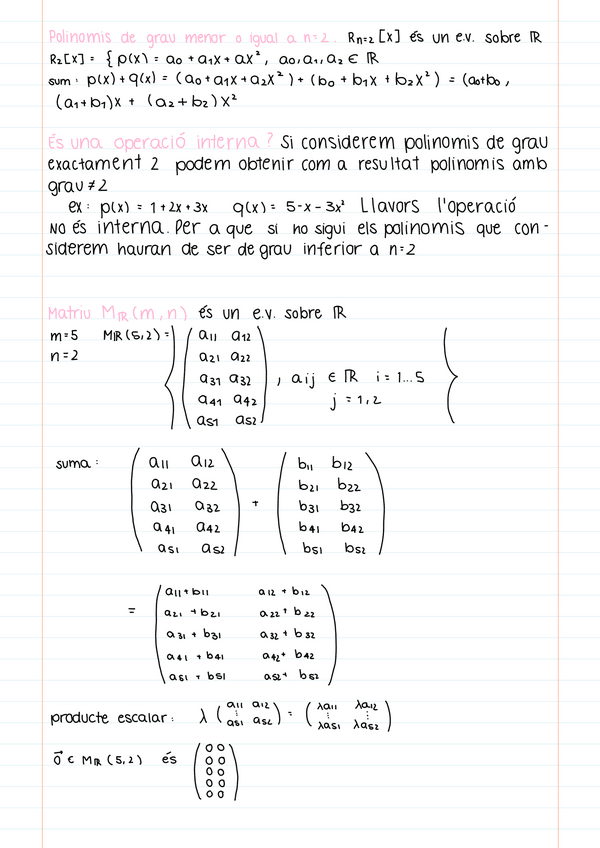 Polinomis de grau menor o igual a n=2. Rn=2 [x] és un e.v. sobre ℝ
R₂[x] = { p(x) = a₀ + a₁x + ax², a₀, a₁, a₂ ∈ ℝ
sum : p(x) + q(x) = (a₀ + a₁x + a₂x²) + (b₀ + b₁x + b₂x²) = (a₀+b₀,
(a₁+b₁)x + (a₂+b₂)x²
És una operació interna? Si considerem polinomis de grau
exactament 2 podem obtenir com a resultat polinomis amb
grau ≠ 2
ex: p(x) = 1 + 2x + 3x q(x) = 5 - x - 3x² Llavors l'operació
NO és interna. Per a que sí ho sigui els polinomis que con-
siderem hauran de ser de grau inferior a n=2
Matriu Mℝ(m,n) és un e.v. sobre ℝ
m=5 Mℝ(5,2) = { ( a₁₁ a₁₂
n=2 a₂₁ a₂₂
a₃₁ a₃₂ , aij ∈ ℝ i = 1...5
a₄₁ a₄₂ j = 1,2
a₅₁ a₅₂ ) }
suma: ( a₁₁ a₁₂ ( b₁₁ b₁₂
a₂₁ a₂₂ b₂₁ b₂₂
a₃₁ a₃₂ + b₃₁ b₃₂
a₄₁ a₄₂ b₄₁ b₄₂
a₅₁ a₅₂ ) b₅₁ b₅₂ )
( a₁₁+b₁₁ a₁₂ + b₁₂
= a₂₁ + b₂₁ a₂₂ + b₂₂
a₃₁ + b₃₁ a₃₂ + b₃₂
a₄₁ + b₄₁ a₄₂ + b₄₂
a₅₁ + b₅₁ a₅₂ + b₅₂ )
producte escalar: λ ( a₁₁ a₁₂ ⋮ a₅₁ a₅₂ ) = ( λa₁₁ λa₁₂ ⋮ ⋮ λa₅₁ λa₅₂ )
0⃗ ∈ Mℝ(5,2) és ( 0 0
0 0
0 0
0 0
0 0 )